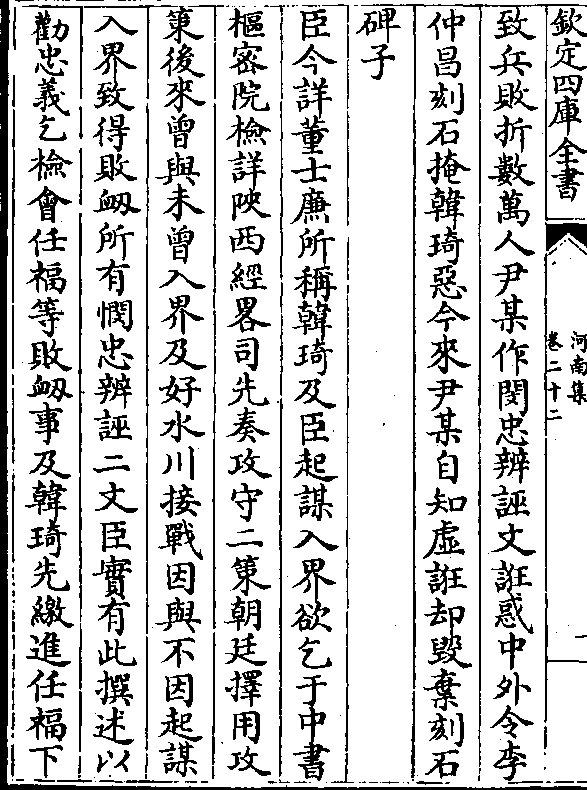 欽定四庫全書
河南集
卷二十二
一
致兵敗折數萬人尹某作閔忠辨誣文誑惑中外令李
仲昌刻石掩韓琦惡今來尹某自知虛誑却毀棄刻石
碑子
臣今詳董士廉所稱韓琦及臣起謀入界欲乞于中書
樞密院檢詳陜西經畧司先奏攻守二策朝廷擇用攻
策後來曾與未曾入界及好水川接戰因與不因起謀
入界致得敗衂所有憫忠辨誣二文臣實有此撰述以
勸忠義乞檢會任福等敗衂事及韓琦先繳進任福下